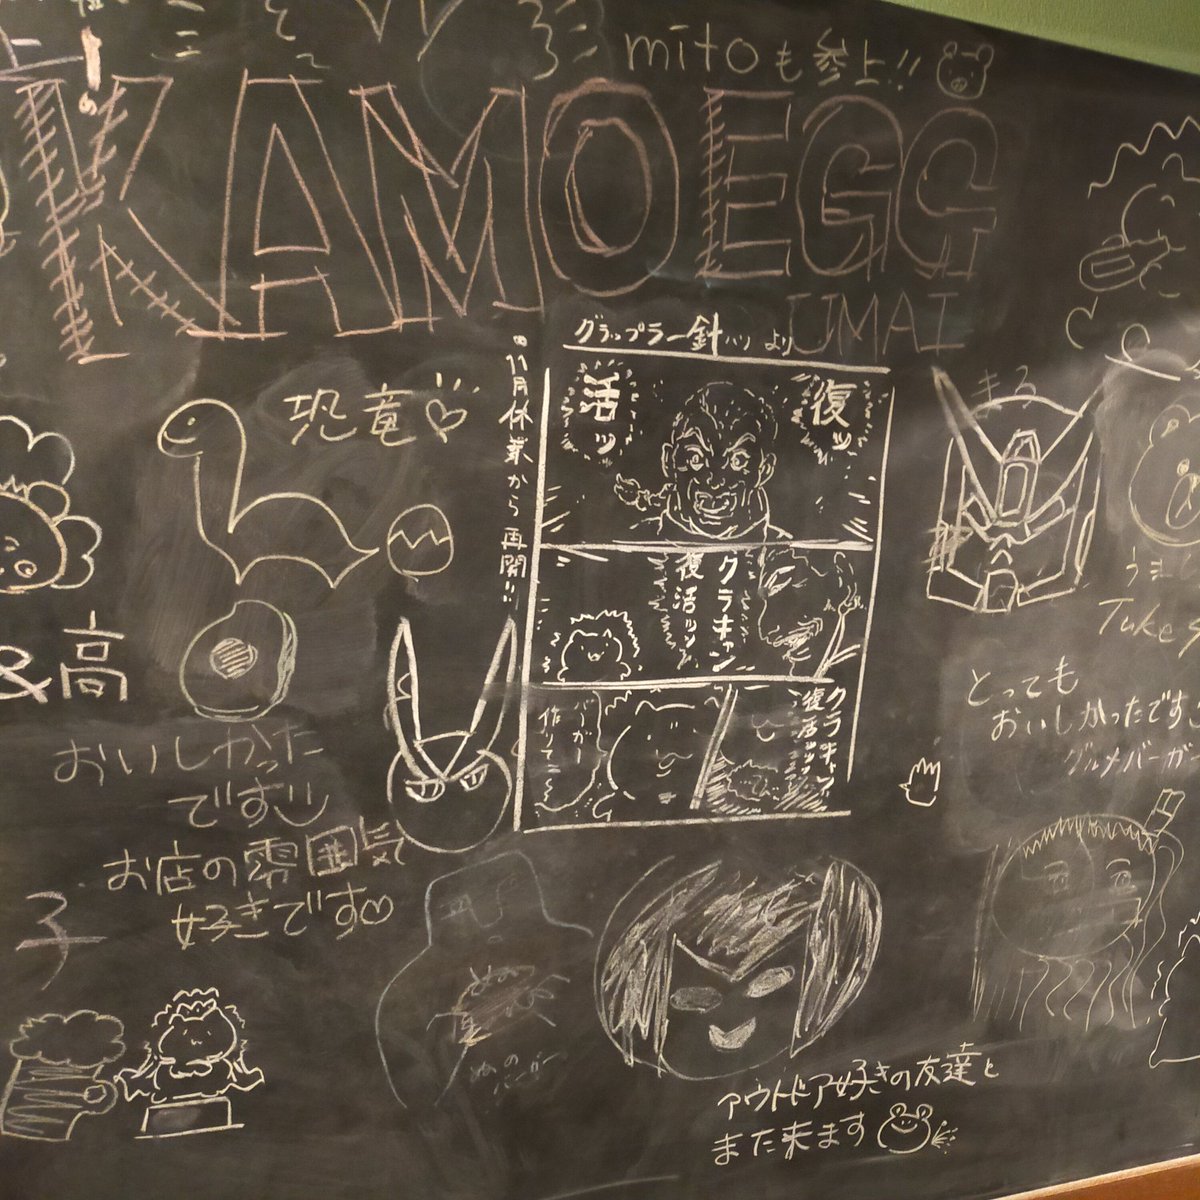 mitoも参上!!
KAMOEGG
UMAI
グラップラー針ハリより
11月休業から再開!!
復ッ
活ッ
クラキャン
復活ッッ
クラキャン
復活ッッッ
バーガー
作りてこ〜
恐竜
まる
&高
おいしかった
です
お店の雰囲気
好きです
子
Take
とっても
おいしかったです
グルメバーガー
ぬの
バーガー
アウトドア好きの友達と
また来ます